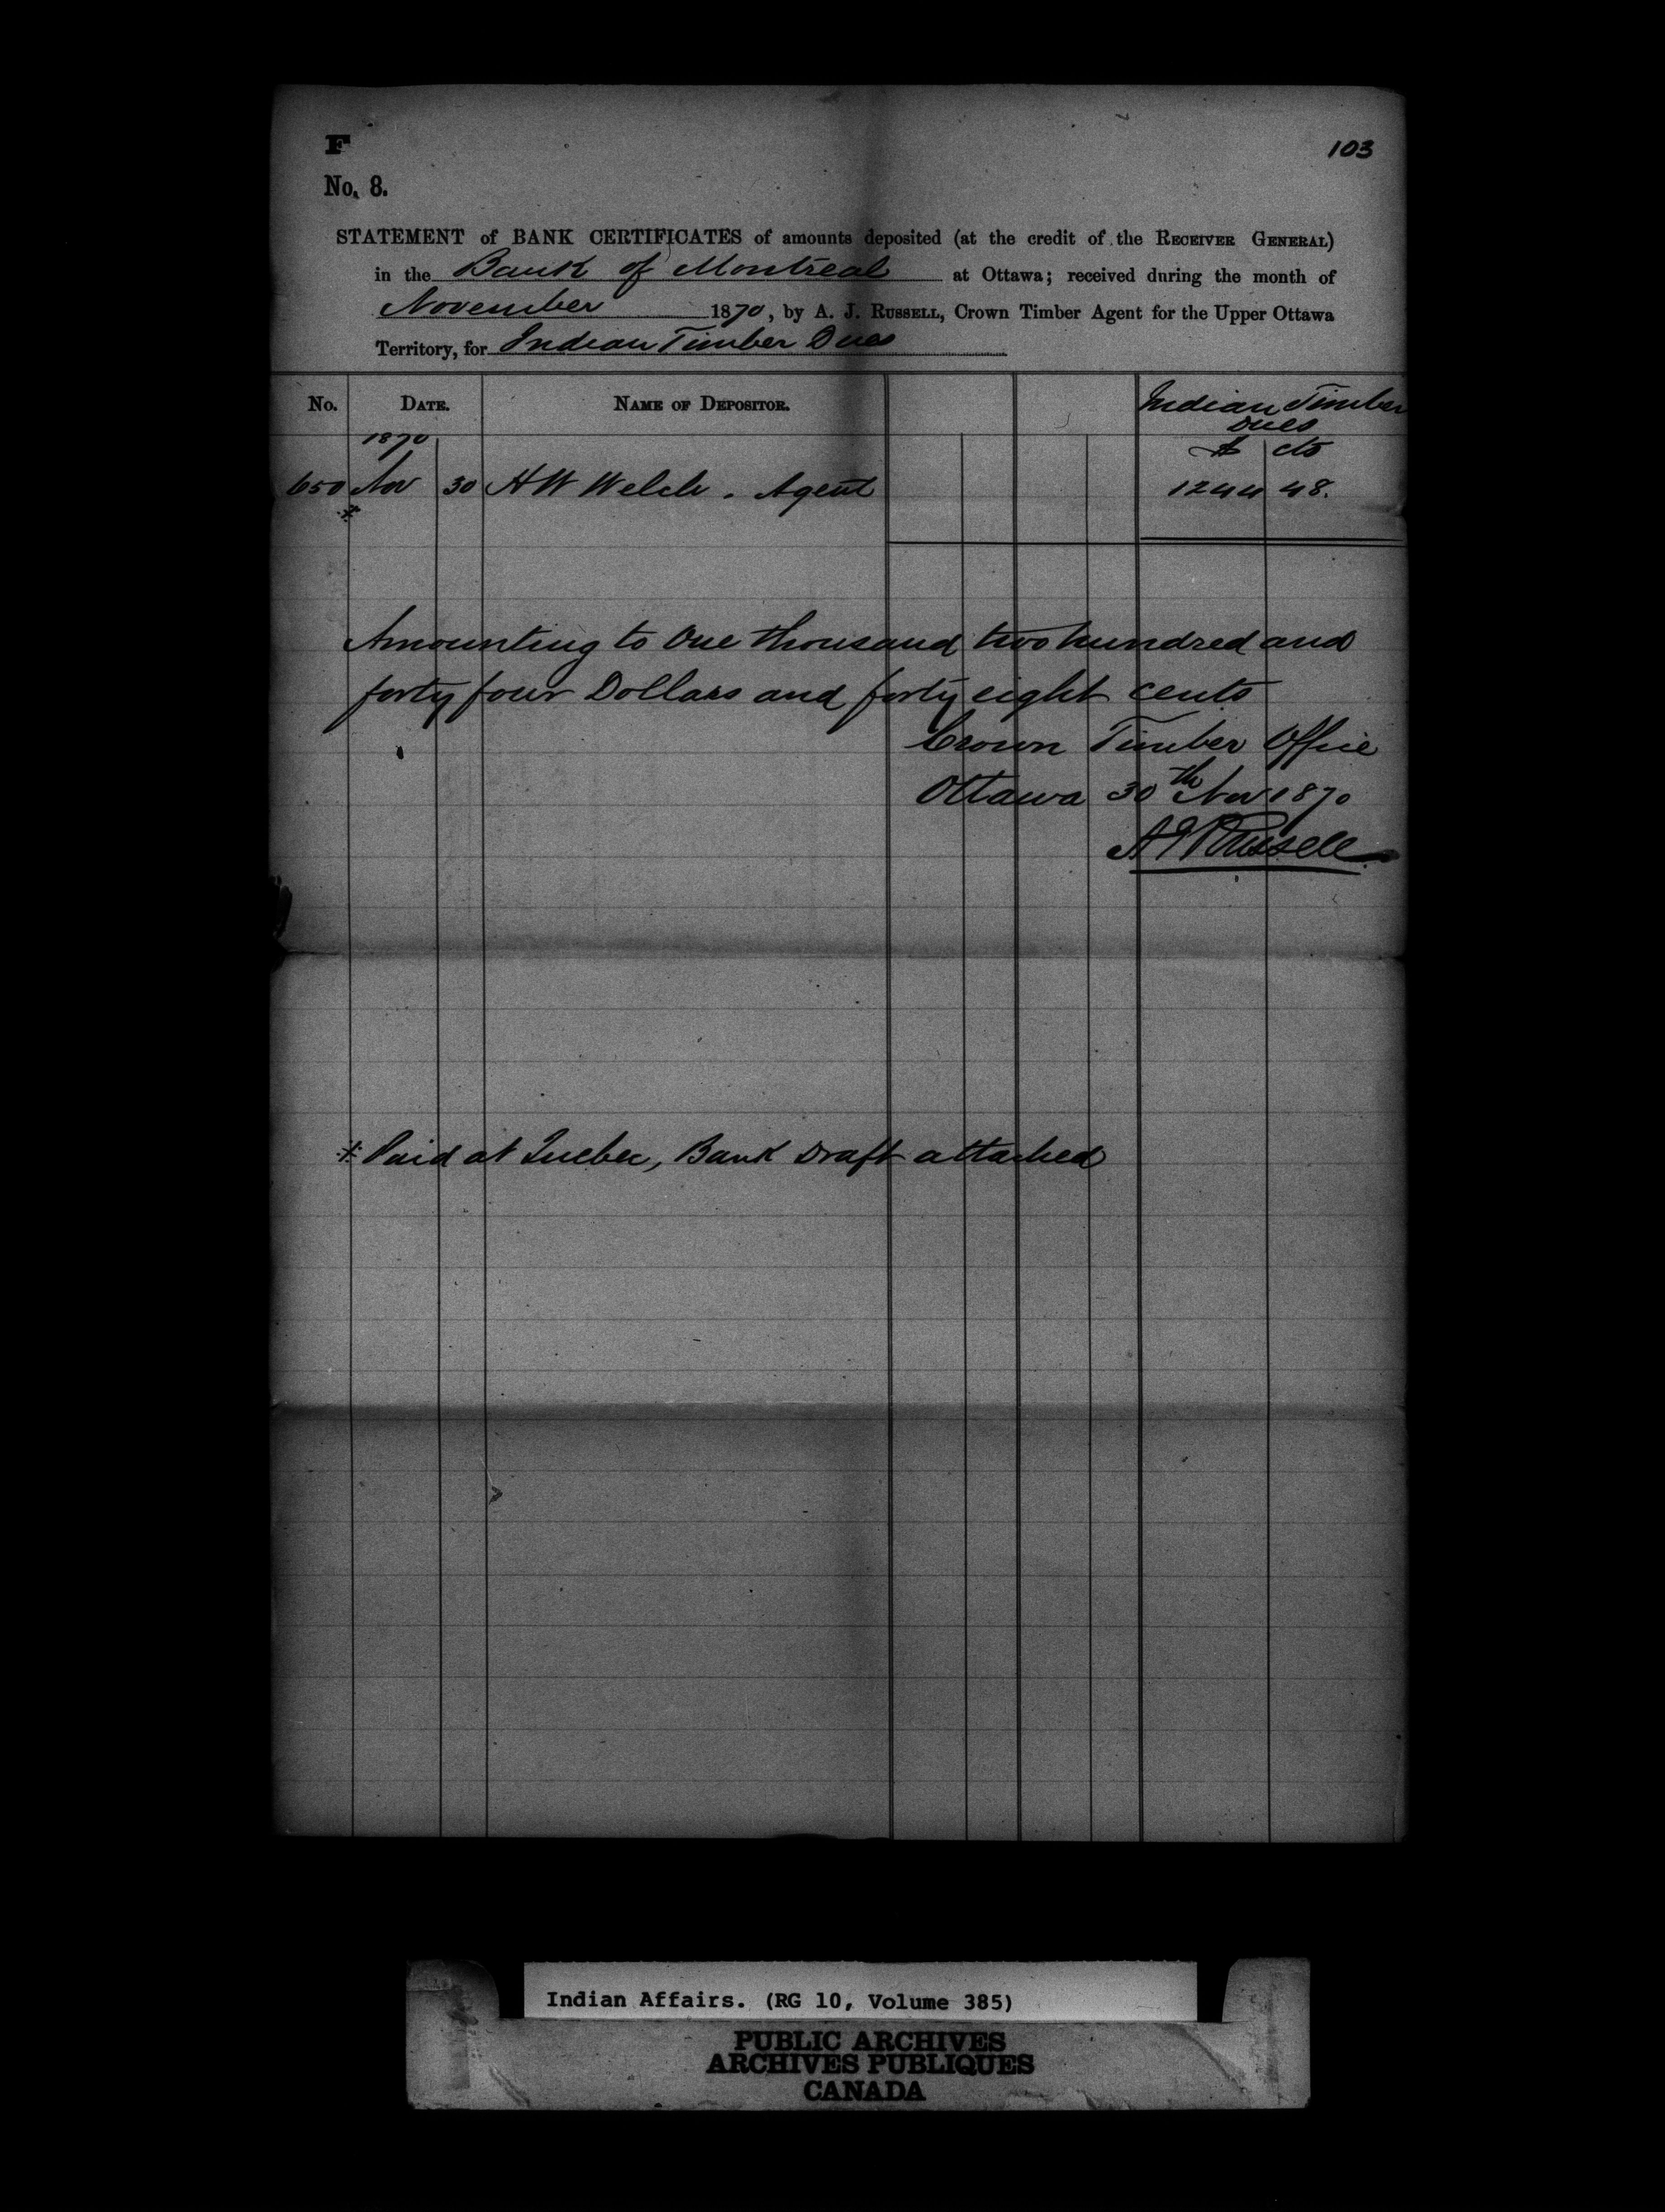 F
103
No. 8.
STATEMENT of BANK CERTIFICATES of amounts deposited (at the credit of the RECEIVER GENERAL)
in the Bank of Montreal at Ottawa; received during the month of
November 1870, by A. J. RUSSELL, Crown Timber Agent for the Upper Ottawa
Territory, for Indian Timber Dues
No. DATE. NAME OF DEPOSITOR. Indian Timber
Dues
1870 $ cts
650 Nov 30 H W Welch. Agent 1244 48.
*
Amounting to One thousand two hundred and
forty four Dollars and forty eight cents
Crown Timber Office
Ottawa 30th Nov 1870
A J Russell
* Paid at Quebec, Bank Draft attached
Indian Affairs. (RG 10, Volume 385)
PUBLIC ARCHIVES
ARCHIVES PUBLIQUES
CANADA